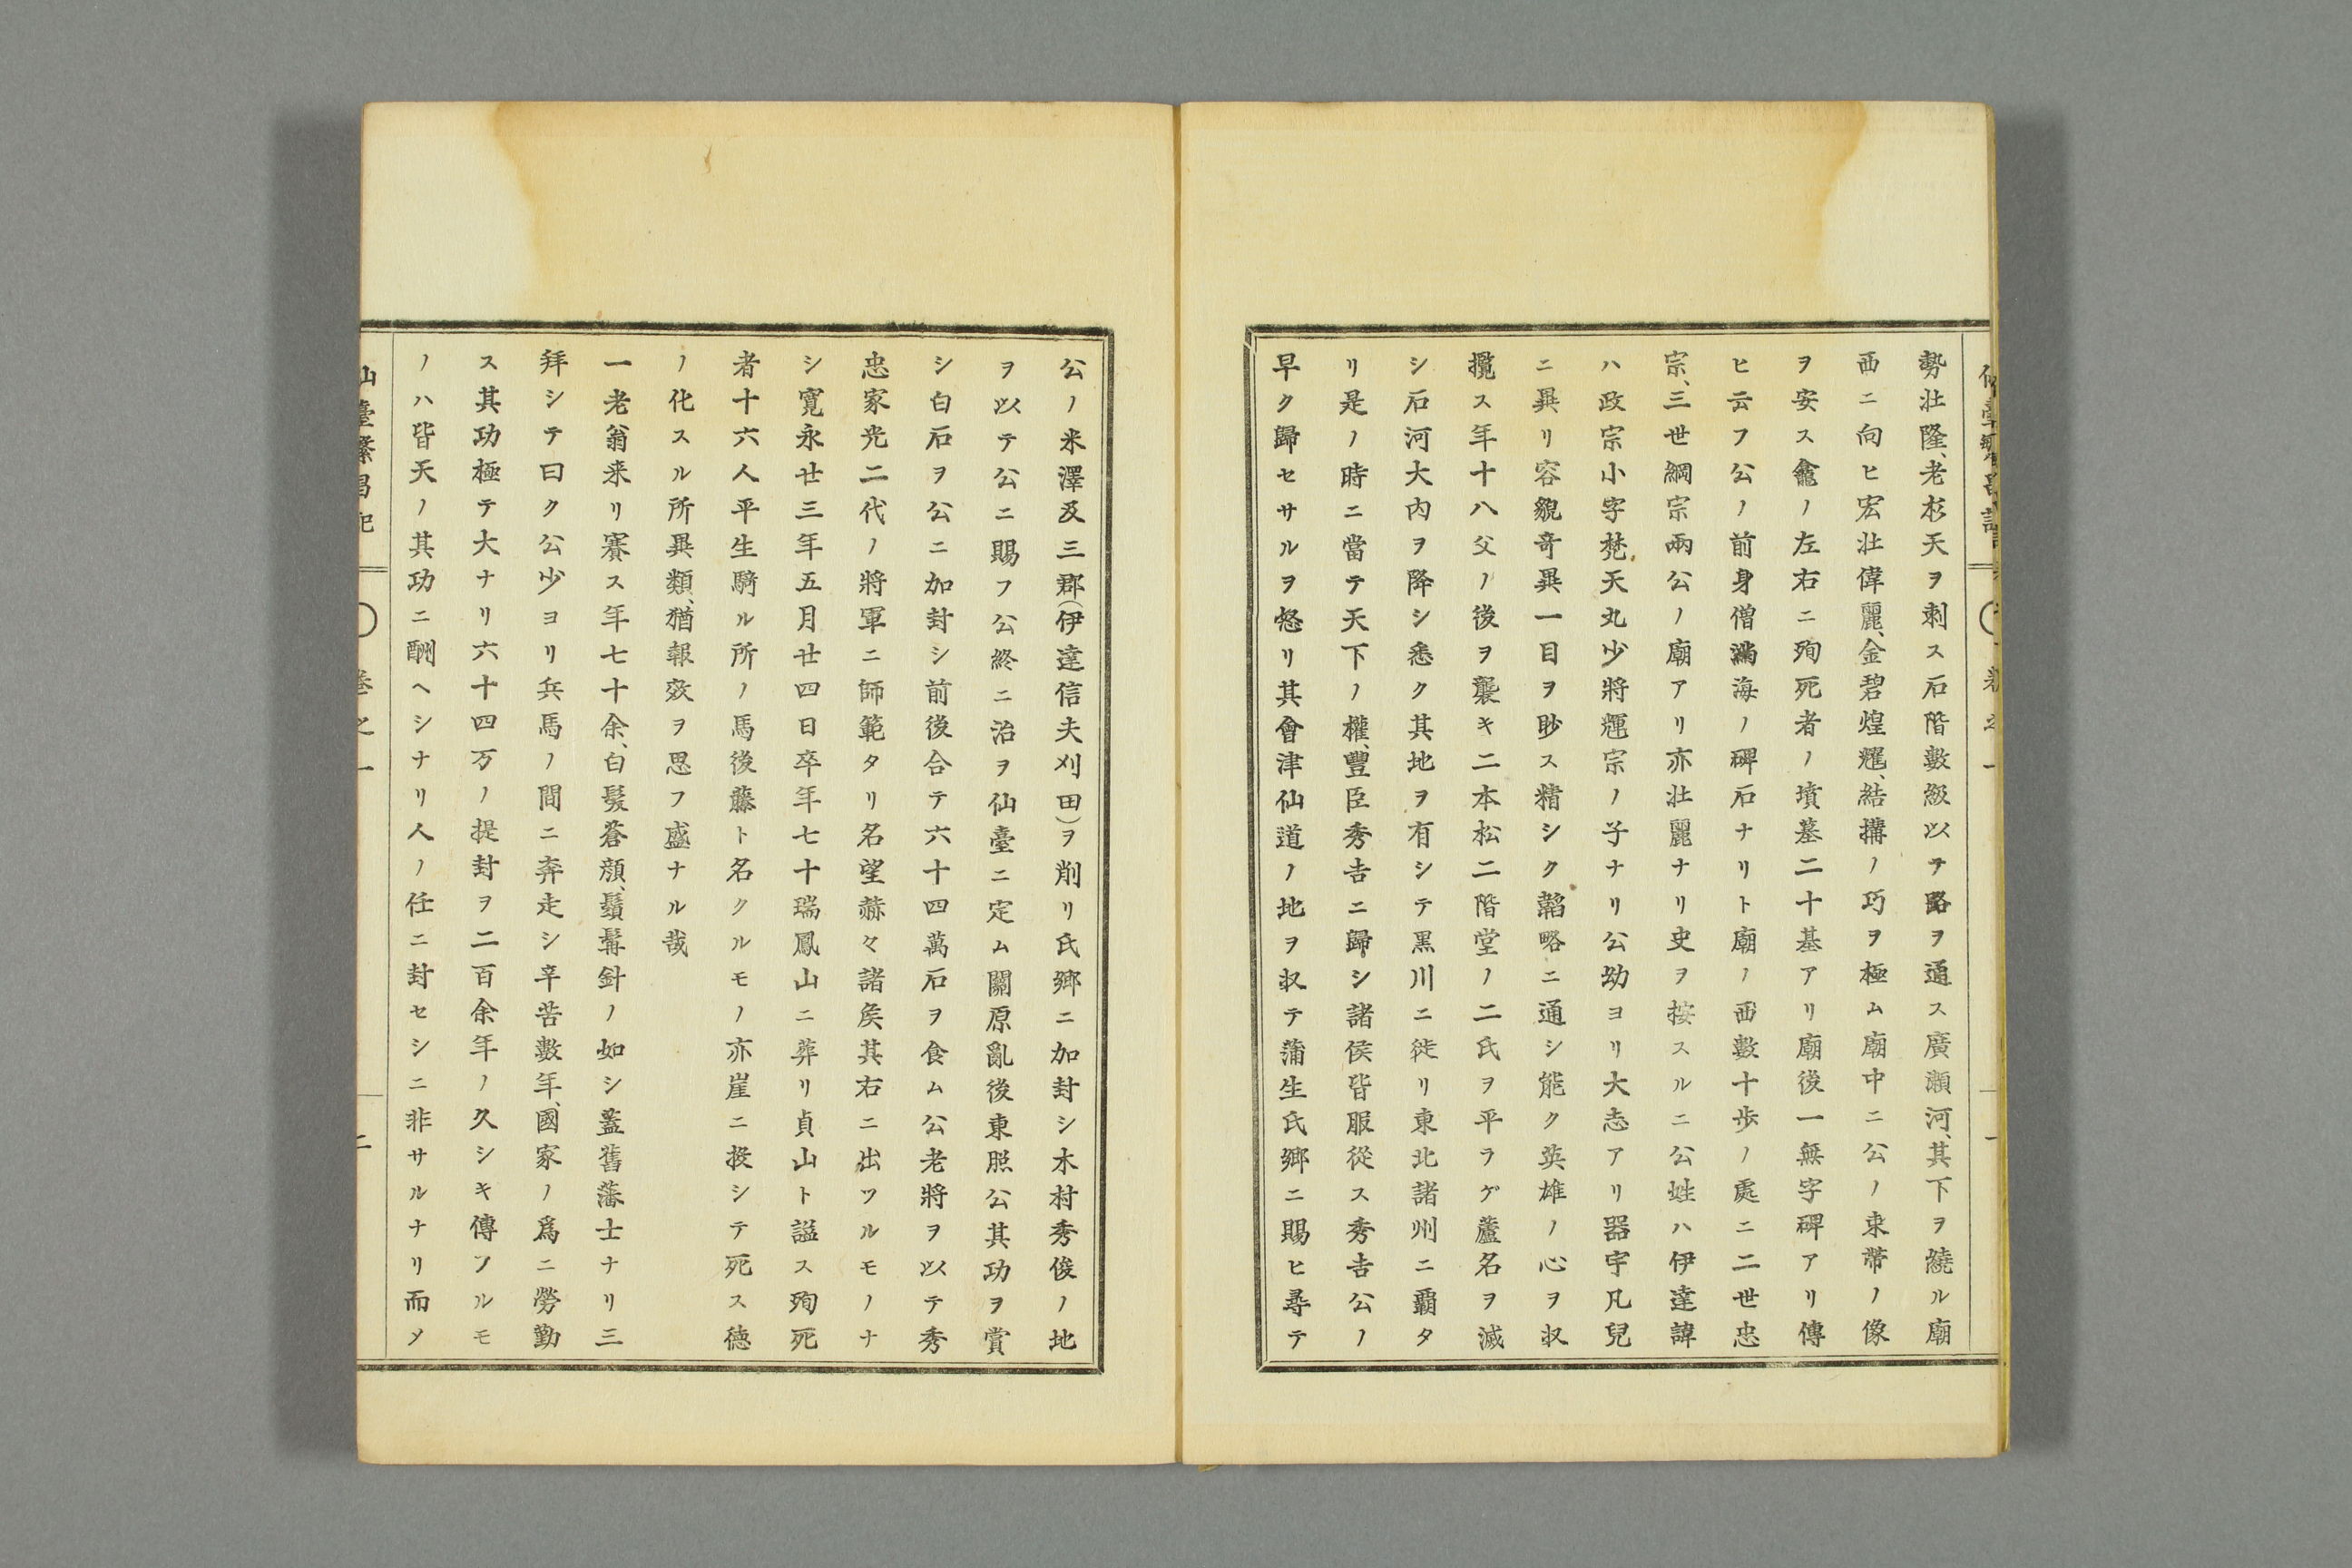 勢壯隆、老杉天ヲ刺ス石階數級以テ路ヲ通ス廣瀬河、其下ヲ繞ル廟
西ニ向ヒ宏壯偉麗、金碧煌耀、結搆ノ巧ヲ極ム廟中ニ公ノ束帶ノ像
ヲ安ス龕ノ左右ニ殉死者ノ墳墓二十基アリ廟後一無字碑アリ傳
ヒ云フ公ノ前身僧滿海ノ碑石ナリト廟ノ西數十歩ノ處ニ二世忠
宗、三世綱宗兩公ノ廟アリ亦壯麗ナリ史ヲ按スルニ公姓ハ伊達諱
ハ政宗小字梵天丸少將輝宗ノ子ナリ公幼ヨリ大志アリ器宇凡兒
ニ異リ容貌奇異一目ヲ眇ス精シク韜略ニ通シ能ク英雄ノ心ヲ収
攬ス年十八父ノ後ヲ襲キ二本松二階堂ノ二氏ヲ平ラゲ蘆名ヲ滅
シ石河大内ヲ降シ悉ク其地ヲ有シテ黒川ニ徙リ東北諸州ニ覇タ
リ是ノ時ニ當テ天下ノ權、豐臣秀吉ニ歸シ諸侯皆服從ス秀吉公ノ
早ク歸セサルヲ怒リ其會津仙道ノ地ヲ収テ蒲生氏郷ニ賜ヒ尋テ
公ノ米澤及三郡(伊達信夫刈田)ヲ削リ氏郷ニ加封シ木村秀俊ノ地
ヲ以テ公ニ賜フ公終ニ治ヲ仙臺ニ定ム關原亂後東照公其功ヲ賞
シ白石ヲ公ニ加封シ前後合テ六十四萬石ヲ食ム公老將ヲ以テ秀
忠家光二代ノ將軍ニ師範タリ名望赫々諸矦其右ニ出ツルモノナ
シ寛永廿三年五月廿四日卒年七十瑞鳳山ニ葬リ貞山ト謚ス殉死
者十六人平生騎ル所ノ馬後藤ト名クルモノ亦崖ニ投シテ死ス徳
ノ化スル所異類、猶報效ヲ思フ盛ナル哉
一老翁来リ賽ス年七十余、白髮蒼顔、鬚髯針ノ如シ蓋舊藩士ナリ三
拜シテ曰ク公少ヨリ兵馬ノ間ニ奔走シ辛苦數年、國家ノ爲ニ勞勤
ス其功極テ大ナリ六十四万ノ提封ヲ二百余年ノ久シキ傳フルモ
ノハ皆天ノ其功ニ酬ヘシナリ人ノ任ニ封セシニ非サルナリ而メ
仙臺繁昌記 巻之一 二